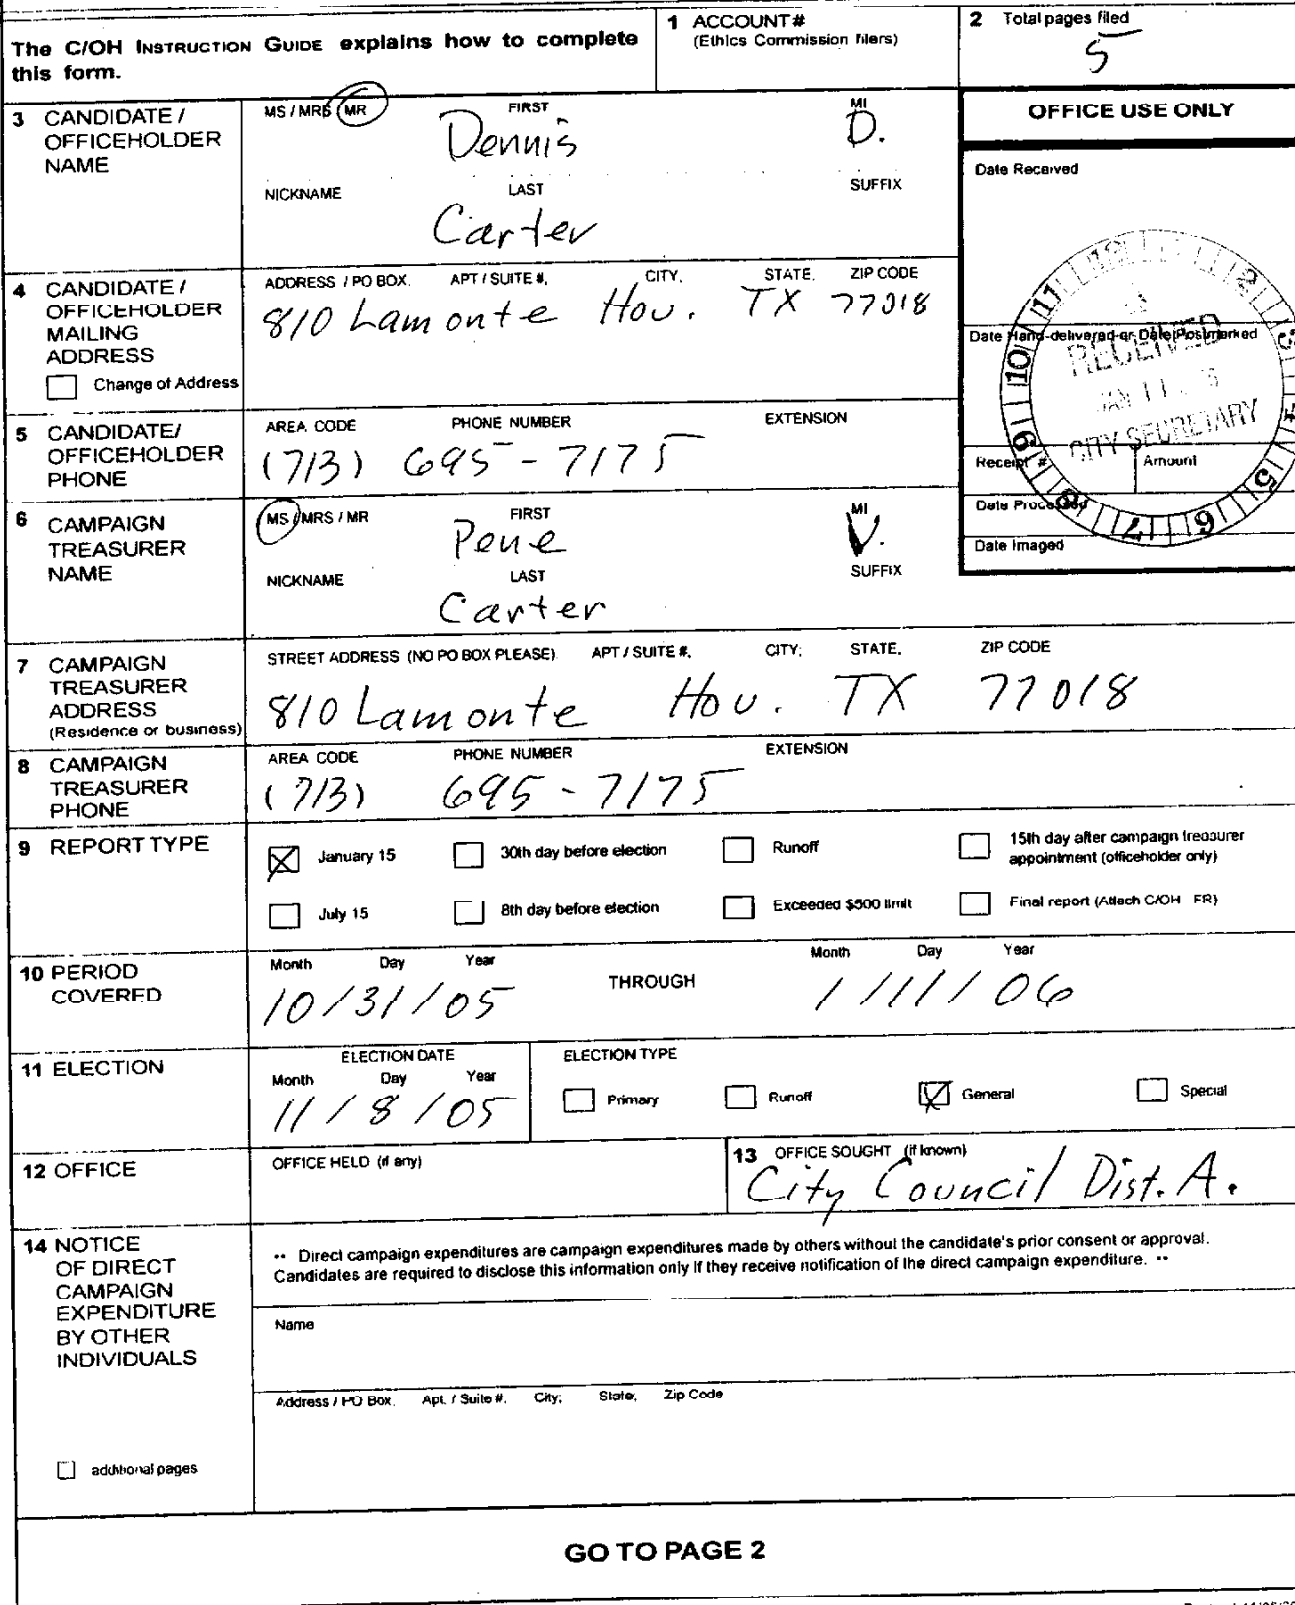 The C/OH INSTRUCTION GUIDE explains how to complete this form.
1 ACCOUNT# (Ethics Commission filers)
2 Total pages filed
5
3 CANDIDATE / OFFICEHOLDER NAME
MS / MRS / MR FIRST MI
Dennis D.
NICKNAME LAST SUFFIX
Carter
OFFICE USE ONLY
Date Received
4 CANDIDATE / OFFICEHOLDER MAILING ADDRESS
Change of Address
ADDRESS / PO BOX. APT / SUITE #, CITY, STATE. ZIP CODE
810 Lamonte Hou. TX 77018
Date Hand-delivered or Date Postmarked
RECEIVED
JAN 11
CITY SECRETARY
5 CANDIDATE/ OFFICEHOLDER PHONE
AREA CODE PHONE NUMBER EXTENSION
(713) 695-7175
Receipt # Amount
Date Processed
Date Imaged
6 CAMPAIGN TREASURER NAME
MS / MRS / MR FIRST MI
Pene V.
NICKNAME LAST SUFFIX
Carter
7 CAMPAIGN TREASURER ADDRESS
(Residence or business)
STREET ADDRESS (NO PO BOX PLEASE) APT / SUITE #, CITY; STATE, ZIP CODE
810 Lamonte Hou. TX 77018
8 CAMPAIGN TREASURER PHONE
AREA CODE PHONE NUMBER EXTENSION
(713) 695-7175
9 REPORT TYPE
January 15 30th day before election Runoff 15th day after campaign treasurer appointment (officeholder only)
July 15 8th day before election Exceeded $500 limit Final report (Attach C/OH FR)
10 PERIOD COVERED
Month Day Year THROUGH Month Day Year
10/31/05 1/11/06
11 ELECTION
ELECTION DATE
Month Day Year
11/8/05
ELECTION TYPE
Primary Runoff General Special
12 OFFICE
OFFICE HELD (if any)
13 OFFICE SOUGHT (if known)
City Council Dist. A.
14 NOTICE OF DIRECT CAMPAIGN EXPENDITURE BY OTHER INDIVIDUALS
•• Direct campaign expenditures are campaign expenditures made by others without the candidate's prior consent or approval.
Candidates are required to disclose this information only if they receive notification of the direct campaign expenditure. ••
Name
Address / PO Box. Apt. / Suite #. City; State, Zip Code
additional pages
GO TO PAGE 2